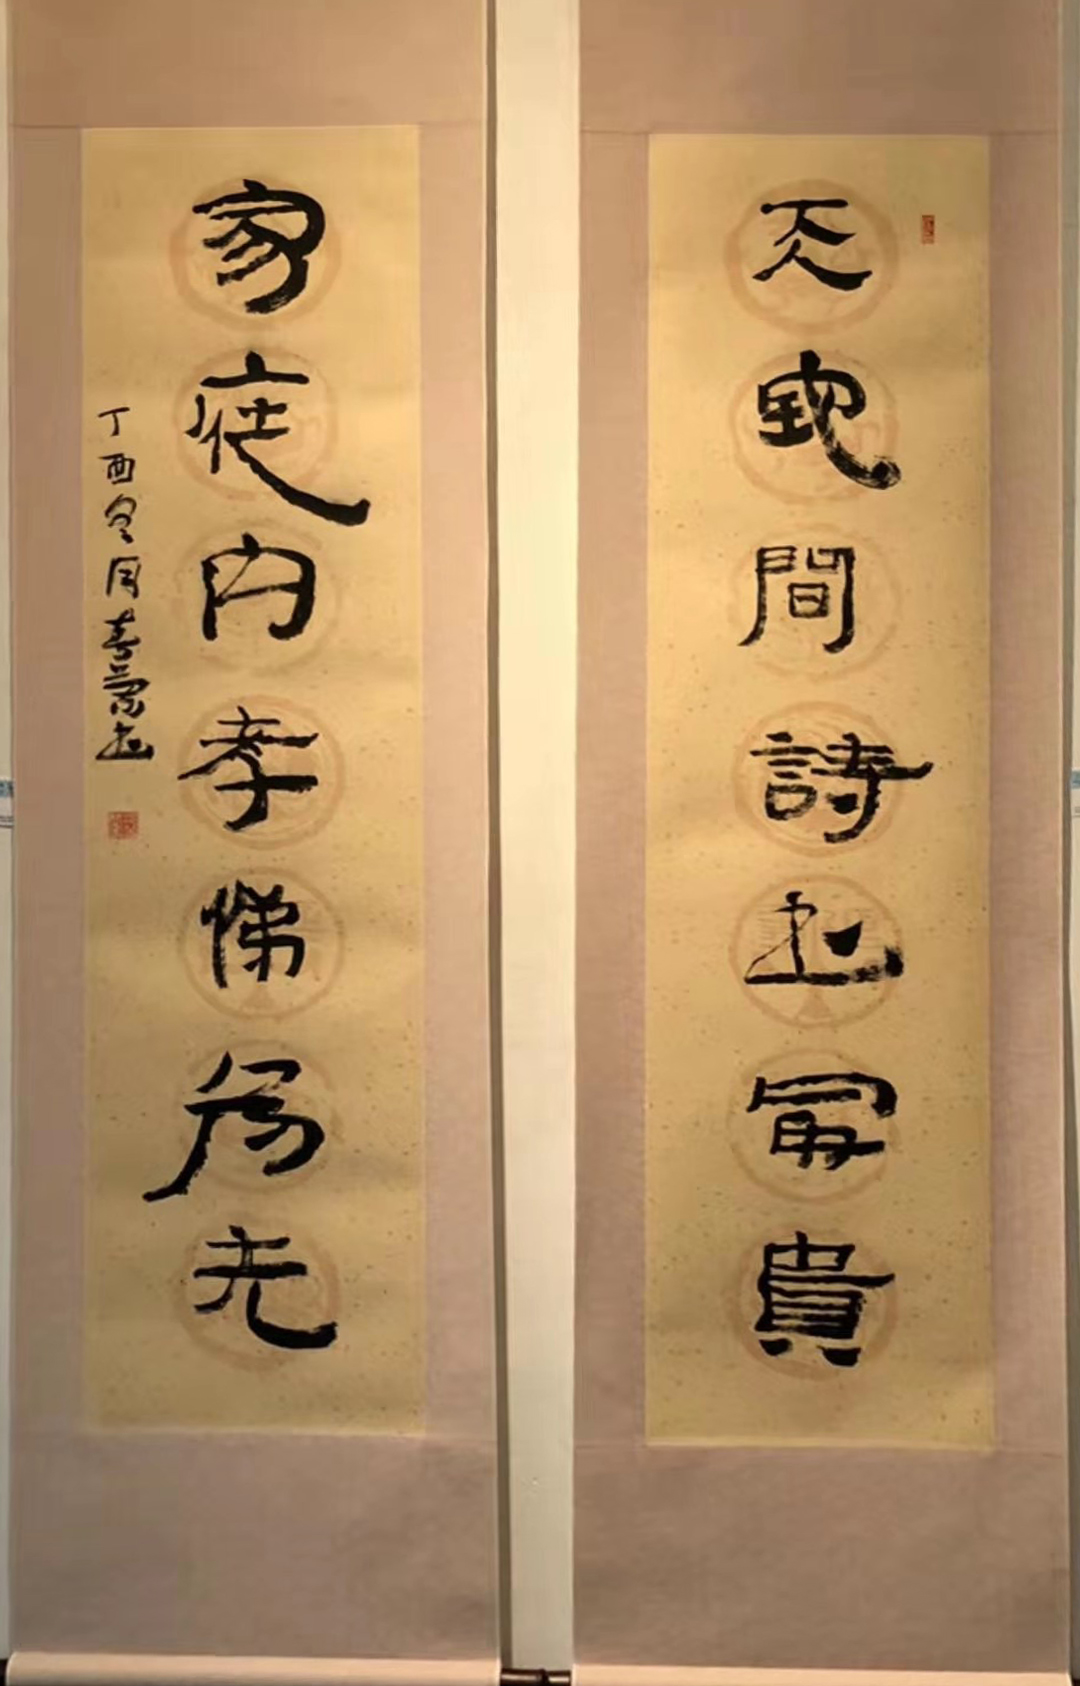 天地間詩書最貴
家庭内孝悌為先
丁酉冬月書